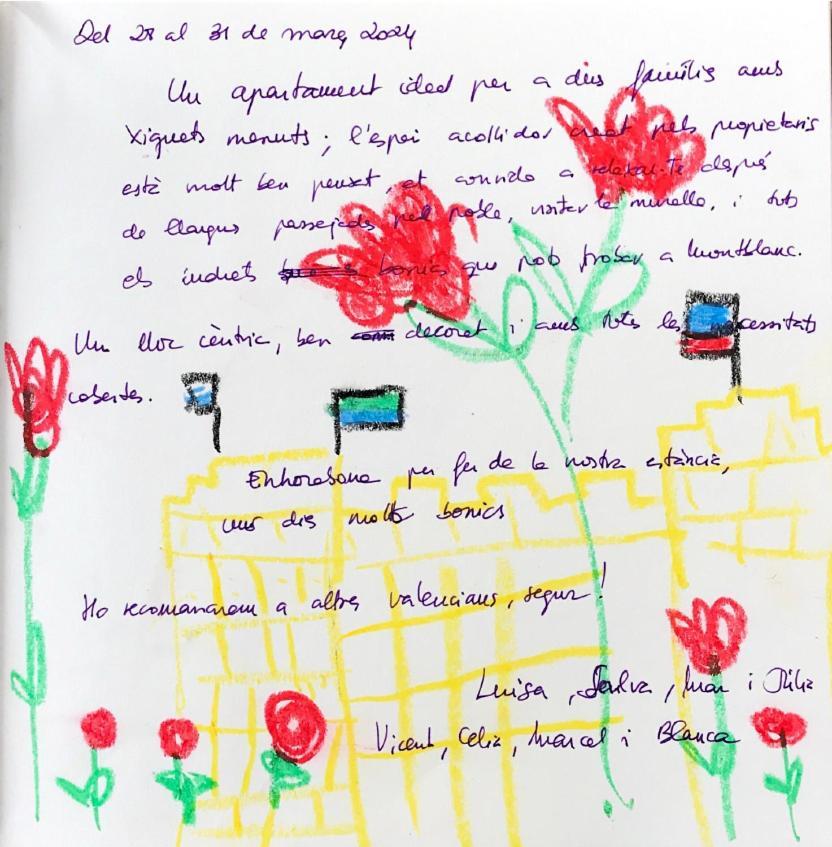 Del 28 al 31 de març 2024
Un apartament ideal per a dues famílies amb
xiquets menuts; l'espai acollidor creat pels propietaris
està molt ben pensat, et convida a relaxar-te després
de llargues passejades pel poble, visitar la muralla, i tots
els indrets bonics que pots trobar a Montblanc.
Un lloc cèntric, ben decorat i amb totes les necessitats
cobertes.
Enhorabona per fer de la nostra estància,
uns dies molt bonics
Ho recomanarem a altres valencians, segur!
Luisa, Salva, Mar i
Vicent, Celia, Marcel i Blanca